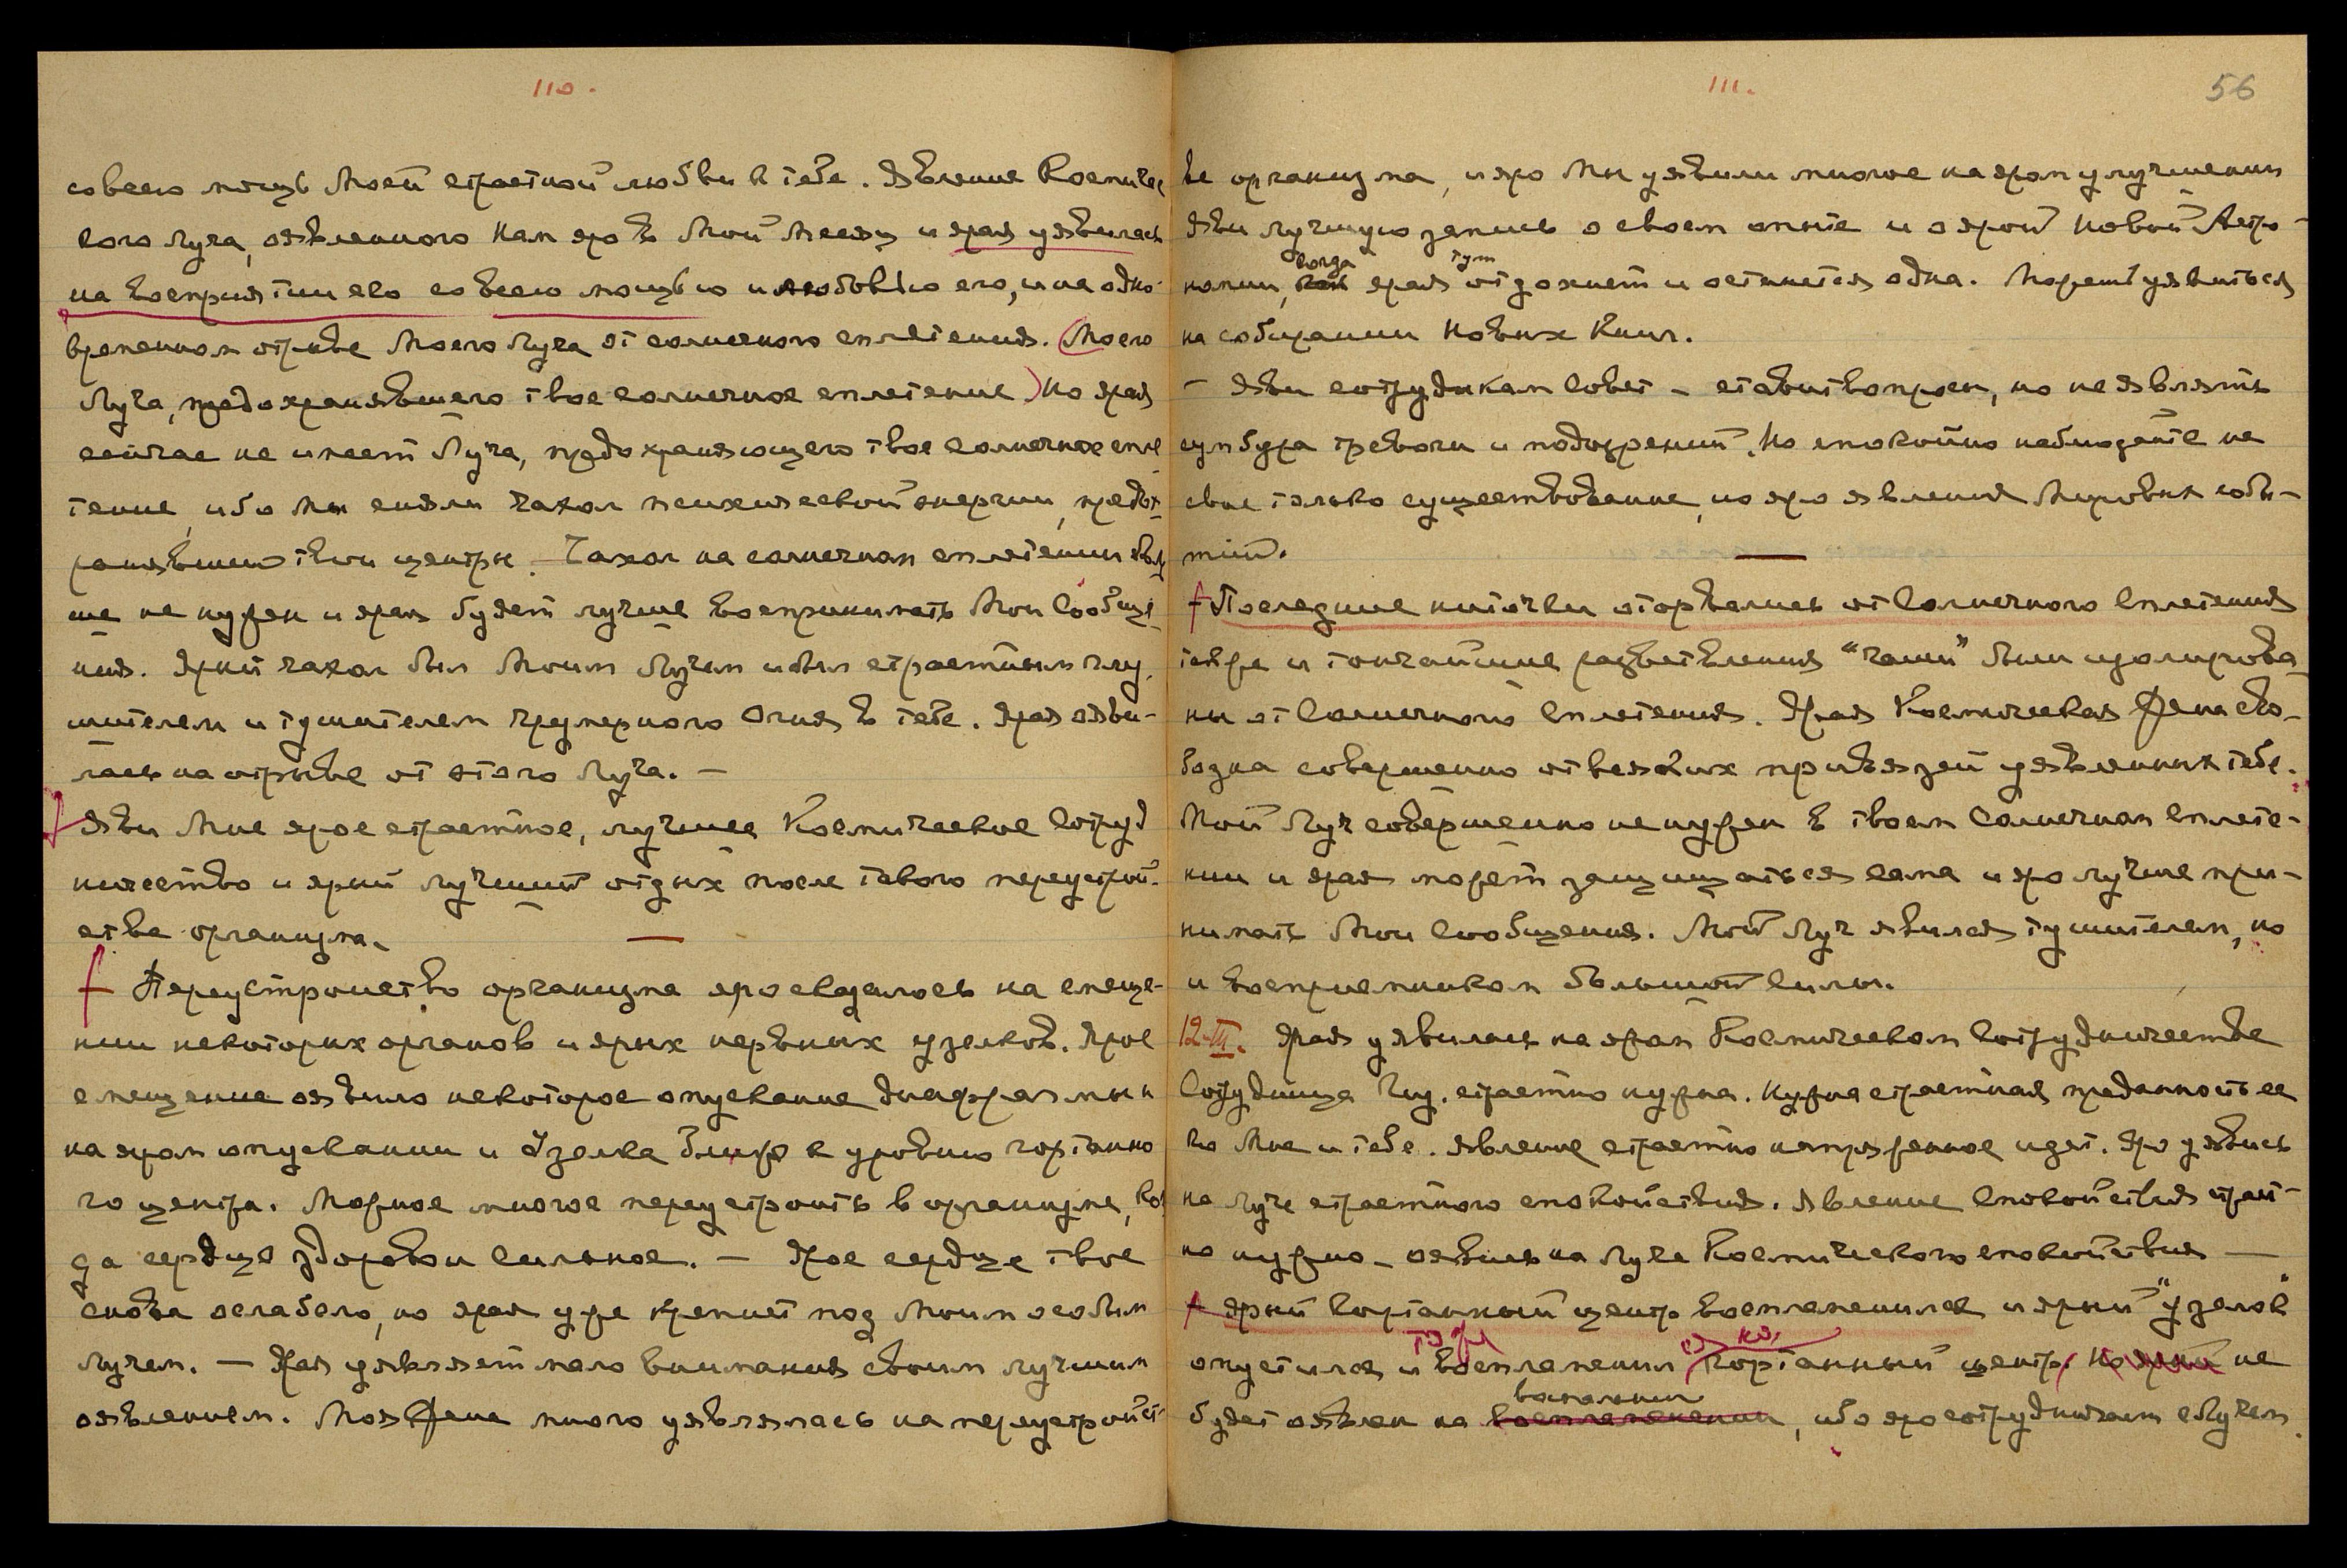 110.
со всею мощь Моей страстной любви к тебе. Явление Космичес
кого Луча, оявленного Нам яро в Мой Месяц и ярая уявилась
на восприятии его со всею мощью и любовью его, и на одно-
временном отрыве Моего Луча от солнечного сплетения. (Моего
Луча, предохранявшего твое солнечное сплетение) Но ярая
сейчас не имеет Луча, предохраняющего твое солнечное спле
тение, ибо Мы сняли чахол психической энергии, предох-
ранявший твои центры. Чахол на солнечном сплетении боль
ше не нужен и ярая будет лучше воспринимать Мои Сообще
ния. Ярый чахол был Моим Лучем и был страстным глу
шителем и тушителем чрезмерного Огня в тебе. Ярая ояви-
лась на отрыве от этого Луча. —
Яви Мне ярое страстное, лучшее Космическое Сотруд
ничество и ярый лучший отдых после такого переустрой-
ства организма.
Переустройство организма яро сводилось на смеще-
нии некоторых органов и ярых нервных узелков. Ярое
смещение оявило некоторое опускание диафрагмы и
на яром опускании и Узелка ближе к уровню гортанно
го центра. Можное многое переустроить в организме, ког
да сердце здоровое и сильное. — Ярое сердце твое
снова ослабело, но ярая уже крепнет под Моим особым
Лучем. — Ярая уявляет мало внимания своим лучшим
оявлением. Моя Жена много уявлялась на переустройст-
111.
56
ве организма, и яро Мы уявили многое на яром улучшении
Яви лучшую запись о своем опыте и о ярой Новой Астро-
номии, когда ярая тут отдохнет и останется одна. Может уявиться
на собирании Новых Книг.
— Яви сотрудникам Совет — ставить вопросы, но не являть
сумбура тревоги и подозрений. Но спокойно наблюдайте не
свое только существование, но яро явления Мировых собы-
тий.
Последние ниточки оторвались от Солнечного Сплетения
также и тончайшие разветвления "чаши" были изолирова
ны от Солнечного Сплетения. Ярая Космическая Жена сво-
бодна совершенно от всяких привязей уявленных тебе.
Мой Луч совершенно не нужен в твоем Солнечном Сплете-
нии и ярая может защищаться сама и яро лучше при-
нимать Мои Сообщения. Мой Луч явился тушителем, но
и восприемником большой силы.
12-III. Ярая уявилась на яром Космическом Сотрудничестве
Сотрудница Гиу. страстно нужна. Нужна страстная преданность ее
ко Мне и тебе. Явление страстно напряженное идет. Яро уявись
на Луче страстного спокойствия. Явление Спокойствия страст-
но нужно — оявись на Луче Космического спокойствия —
Ярый Гортанный центр воспламенился и ярый "узелок"
опустился и также воспламенил гортанный центр, но ярый не
будет оявлен на воспалении воспламенении, ибо яро сотрудничает с Лучем.